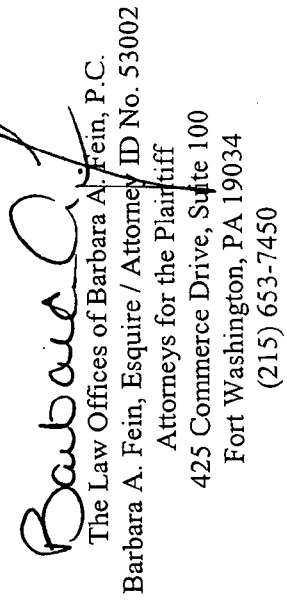 Barbara A.
The Law Offices of Barbara A. Fein, P.C.
Barbara A. Fein, Esquire / Attorney ID No. 53002
Attorneys for the Plaintiff
425 Commerce Drive, Suite 100
Fort Washington, PA 19034
(215) 653-7450